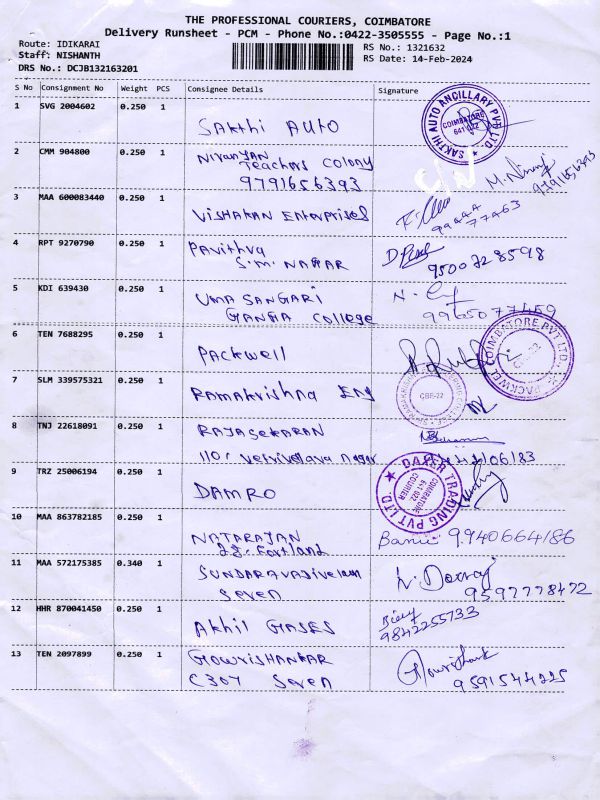 THE PROFESSIONAL COURIERS, COIMBATORE
Delivery Runsheet - PCM - Phone No.:0422-3505555 - Page No.:1
Route: IDIKARAI
RS No.: 1321632
Staff: NISHANTH
RS Date: 14-Feb-2024
DRS No.: DCJB132163201
S No Consignment No Weight PCS Consignee Details Signature
1 SVG 2004602 0.250 1
SAKTHI AUTO
SAKTHI AUTO ANCILLARY PVT LTD
COIMBATORE
2 CMM 904800 0.250 1
Niranjan
Teachers Colony
9791656393
9791656393
3 MAA 600083440 0.250 1
Vishakan Enterprises
99444
77463
4 RPT 9270790 0.250 1
Pavithra
S.M. NAGAR
9500728598
5 KDI 639430 0.250 1
UMA SANGARI
GANGA College
9965077459
6 TEN 7688295 0.250 1
Packwell
COIMBATORE PVT LTD.
7 SLM 339575321 0.250 1
Ramakrishna ENJ
CBE-22
8 TNJ 22618091 0.250 1
RAJASEKARAN
110, Vetrivelava nagar
06183
9 TRZ 25006194 0.250 1
DAMRO
TRADING PVT LTD
COIMBATORE
641 022.
COURIER
10 MAA 863782185 0.250 1
NATARAJAN
Fortland
9940664186
11 MAA 572175385 0.340 1
SUNDARAVADIVELAM
Seven
9597778472
12 HHR 870041450 0.250 1
Akhil GASES
9842255733
13 TEN 2097899 0.250 1
GOWRISHANKAR
C307 Seven
Gowrishank
9591544225